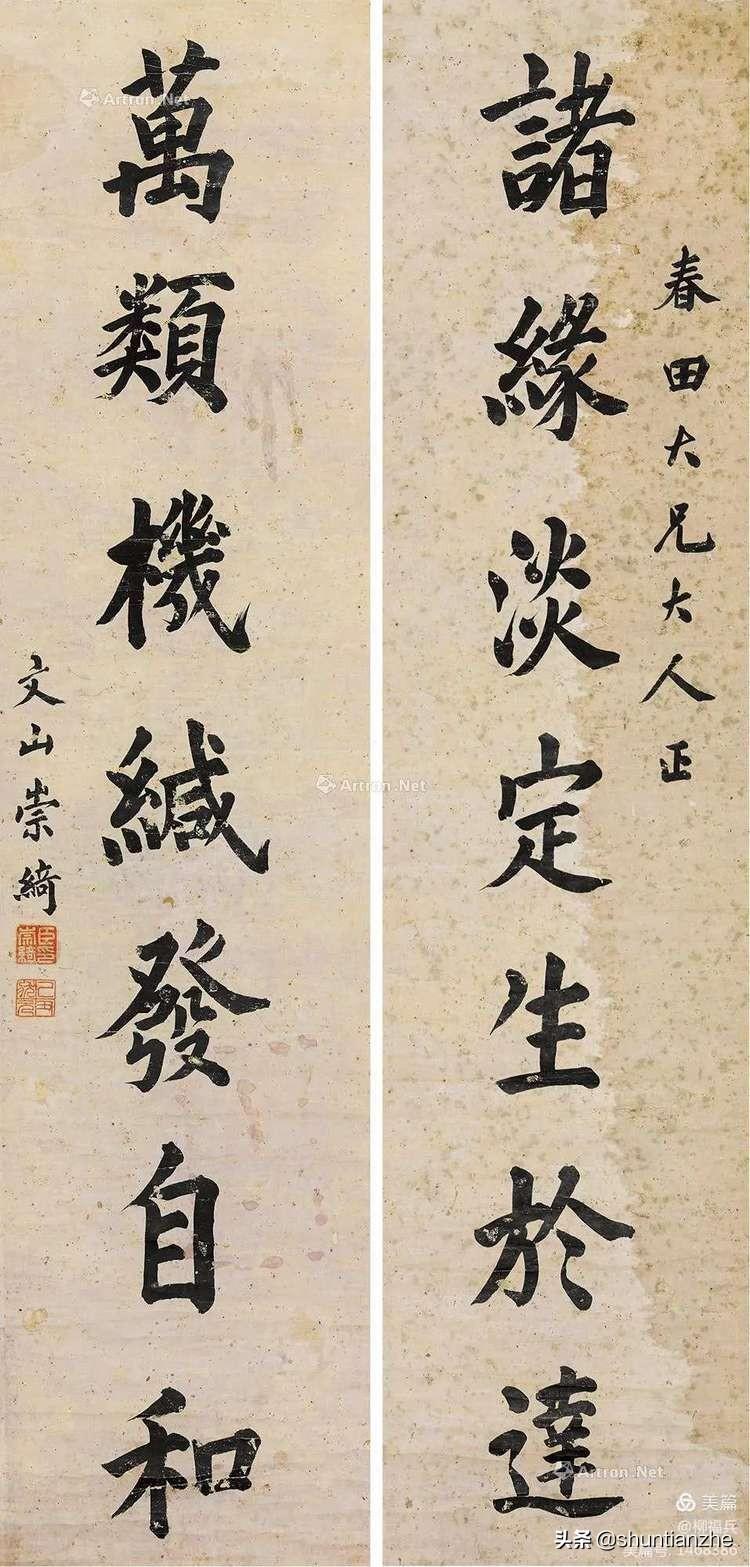 春田大兄大人正
諸緣淡定生於達
萬類機緘發自和
文山崇綺
臣印崇綺
Artron.Net
Artron.Net
Artron.Net
美篇
@柳福兵
美篇号 1408386
头条 @shuntianzhe